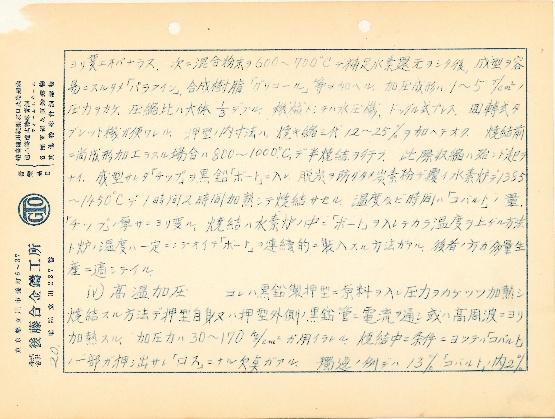 ヨリ異エネバナラヌ。次ニ混合粉末ヲ600〜700℃デ補足水素還元ヲシタ後、成型ヲ容
易ニスルタメ「パラフイン」、合成樹脂「グリコール」等ヲ加ヘル。加圧成形ハ1〜5 T/cm²ノ
圧力ヲカケ、圧縮比ハ大体 1/3 デアル。機械トシテハ水圧機、トッグル式プレス、回轉式タ
ブレット機ガ使ワレル。押型ノ内寸法ハ焼結縮ミ代12〜25%ヲ加ヘテオク。焼結前
ニ成形加工ヲスル場合ハ800〜1000℃デ半焼結ヲ行フ。此際収縮ハ殆ンド起ラ
ナイ。成型サレタ「チップ」ヲ黒鉛「ボート」ニ入レ脱炭ヲ防グタメ炭素粉デ覆イ水素炉デ1385
〜1450℃デ1時間乃至2時間加熱シテ焼結サセル。温度及ビ時間ハ「コバルト」ノ量、
「チップ」ノ厚サニヨリ異ル。焼結ハ水素炉ノ中ニ「ボート」ヲ入レテカラ温度ヲ上ゲル方法
ト炉ノ温度ハ一定ニシテオイテ「ボート」ヲ連続的ニ装入スル方法ガアル。後者ノ方ガ多量生
産ニ適シテイル。
iv) 高温加圧 コレハ黒鉛製押型ニ原料ヲ入レ圧力ヲカケツツ加熱シ
焼結スル方法デ押型自身又ハ押型外側ノ黒鉛管ニ電流ヲ通シ或ハ高周波ニヨリ
加熱スル。加圧力ハ30〜170 kg/cm²ガ用イラレル。焼結中ニ条件ニヨッテハ「コバルト」
ノ一部ガ押シ出サレ「ロス」ニナル欠点ガアル。獨逸ノ例デハ13%「コバルト」ノ内2%
GTO
後藤合金鑄工所
20.